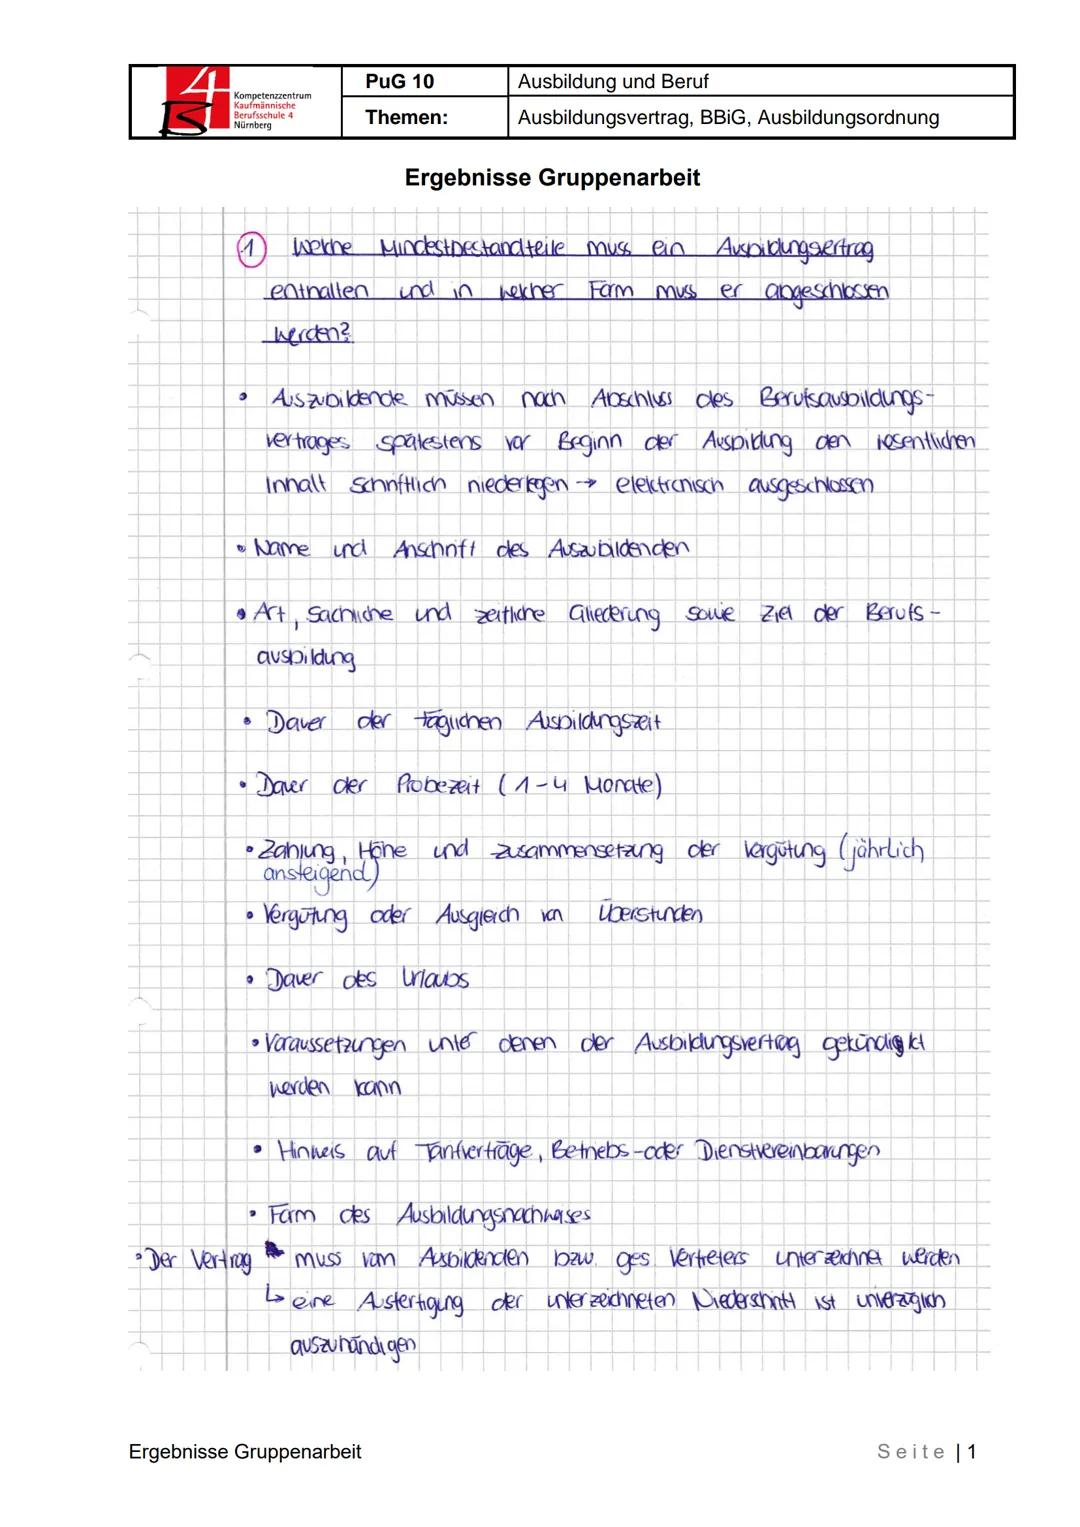 4
B
Kompetenzzentrum
Kaufmännische
Berufsschule 4
Nürnberg
PuG 10
Ausbildung und Beruf
Themen:
Ausbildungsvertrag, BBiG, Ausbildungsordnung
Ergebnisse Gruppenarbeit
1 Welche Mindestbestandteile muss ein Ausbildungsvertrag
enthalten und in welcher Form muss er abgeschlossen
werden?
• Auszubildende müssen nach Abschluss des Berufsausbildungs-
vertrages spätestens vor Beginn der Ausbildung den wesentlichen
Inhalt schriftlich niederlegen → elektronisch ausgeschlossen
• Name und Anschrift des Auszubildenden
• Art, sachliche und zeitliche Gliederung sowie Ziel der Berufs-
ausbildung
• Dauer der täglichen Ausbildungszeit
• Dauer der Probezeit (1-4 Monate)
• Zahlung, Höhe und zusammensetzung der Vergütung (jährlich
ansteigend)
• Vergütung oder Ausgleich von Überstunden
• Dauer des Urlaubs
• Voraussetzungen unter denen der Ausbildungsvertrag gekündigkt
werden kann
• Hinweis auf Tarifverträge, Betriebs-oder Dienstvereinbarungen
• Form des Ausbildungsnachweises
• Der Vertrag muss vom Ausbildenden bzw. ges. Vertreters unterzeichnet werden
↳ eine Ausfertigung der unterzeichneten Niederschrift ist unverzüglich
auszuhändigen
Ergebnisse Gruppenarbeit
Seite | 1